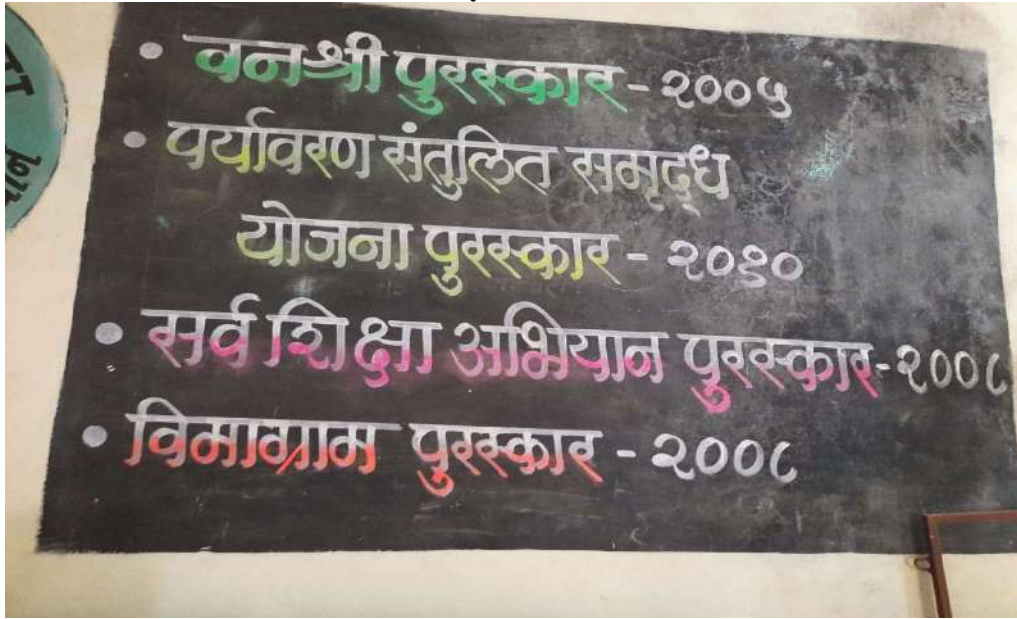 • वनश्री पुरस्कार - २००५
• पर्यावरण संतुलित समृद्ध
योजना पुरस्कार - २०१०
• सर्व शिक्षा अभियान पुरस्कार-२००८
• विमाग्राम पुरस्कार - २००८